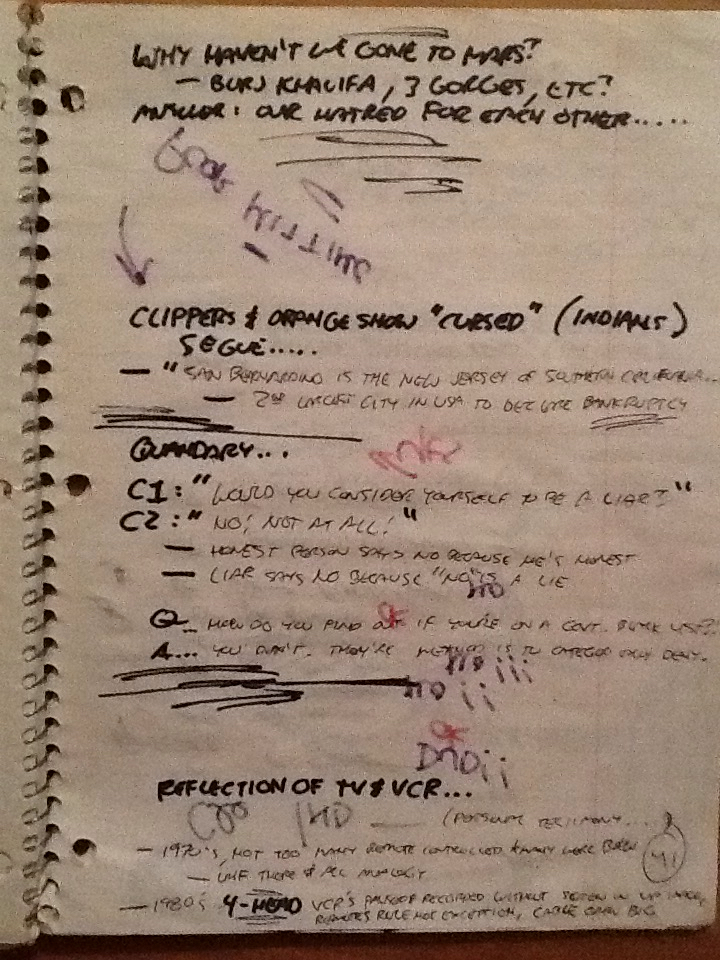 WHY HAVEN'T WE GONE TO MARS?
— BURJ KHALIFA, 3 GORGES, ETC?
ANSWER: OUR HATRED FOR EACH OTHER.....
CLIPPERS & ORANGE SHOW "CURSED" (INDIANS)
SEGUE.....
— "SAN BERNARDINO IS THE NEW JERSEY OF SOUTHERN CALIFORNIA...
— 2ND LARGEST CITY IN USA TO DECLARE BANKRUPTCY
QUANDARY...
C1: "WOULD YOU CONSIDER YOURSELF TO BE A LIAR?"
C2: "NO! NOT AT ALL!"
— HONEST PERSON SAYS NO BECAUSE HE'S HONEST
— LIAR SAYS NO BECAUSE "NO" IS A LIE
Q... HOW DO YOU FIND OUT IF YOU'RE ON A GOVT. BLACK LIST?
A... YOU DON'T. THEY'RE METHOD IS TO CATEGORICALLY DENY.
REFLECTION OF TV & VCR...
(PERSONAL TESTIMONY.....)
— 1970'S, NOT TOO MANY REMOTE CONTROLLED & MANY WERE
— UHF THERE & ALL ANALOGY
41
— 1980'S 4-HEAD VCR'S RECORDED WITHOUT
REMOTES RULE NOT EXCEPTION, CABLE GREW BIG